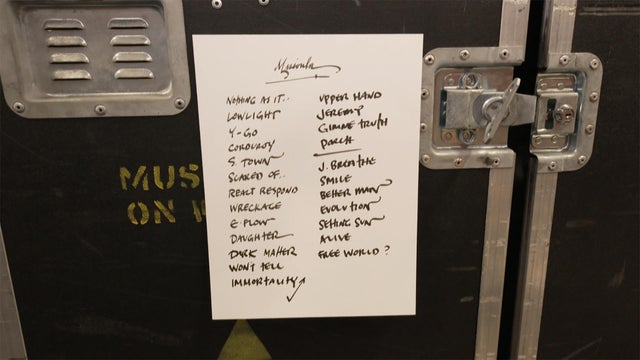 Missoula
NOTHING AS IT..
LOWLIGHT
Y-GO
CORDUROY
S. TOWN
SCARED OF..
REACT RESPOND
WRECKAGE
E FLOW
DAUGHTER
DARK MATTER
WONT TELL
IMMORTALITY
UPPER HAND
JEREMY
GIMME TRUTH
PORCH
J. BREATHE
SMILE
BETTER MAN
EVOLUTION
SETTING SUN
ALIVE
FREE WORLD?
MUS
ON